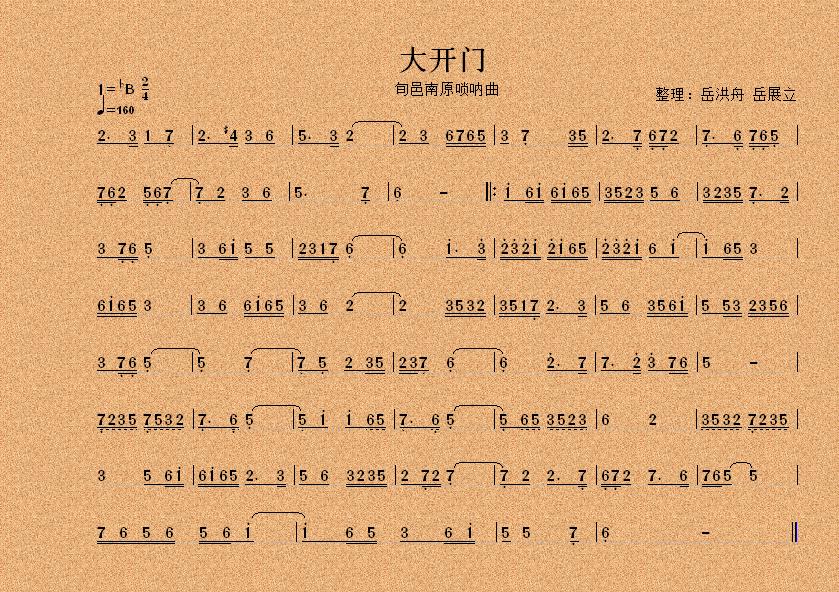 大开门
旬邑南原唢呐曲
1=♭B 2/4
整理：岳洪舟 岳展立
♩=160
2. 3 1 7 | 2. #4 3 6 | 5. 3 2 | 2 3 6765 | 3 7 35 | 2. 7 672 | 7. 6 765 |
762 567 | 7 2 3 6 | 5. 7 | 6 - ‖: i 6i 6i65 | 3523 5 6 | 3235 7. 2 |
3 76 5 | 3 6i 5 5 | 2317 6 | 6 i. 3 | 2321 2165 | 2321 6 i | i 65 3 |
6i65 3 | 3 6 6i65 | 3 6 2 | 2 3532 | 3517 2. 3 | 5 6 356i | 5 53 2356 |
3 76 5 | 5 7 | 7 5 2 35 | 237 6 | 6 2. 7 | 7. 2 3 76 | 5 - |
7235 7532 | 7. 6 5 | 5 i i 65 | 7. 6 5 | 5 65 3523 | 6 2 | 3532 7235 |
3 5 6i | 6i65 2. 3 | 5 6 3235 | 2 72 7 | 7 2 2. 7 | 672 7. 6 | 765 5 |
7 6 5 6 5 6 i | i 6 5 3 6 i | 5 5 7 | 6 - ‖